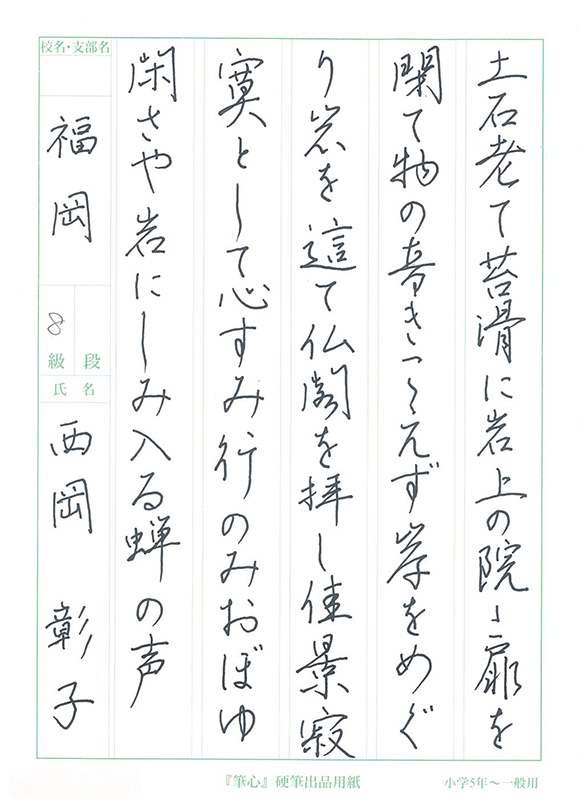 土石老て苔滑に岩上の院々扉を
閑て物の音きこえず岸をめぐ
り岩を這て仏閣を拝し佳景寂
寞として心すみ行のみおぼゆ
閑さや岩にしみ入る蝉の声
校名・支部名
福岡
8
級 段
氏名
西岡 彰子
『筆心』硬筆出品用紙
小学5年〜一般用